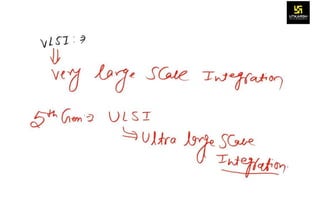 VLSI :⇒
⇓
Very large Scale Integration
5th Gen ⇒ ULSI
⇒ Ultra large Scale
Integration